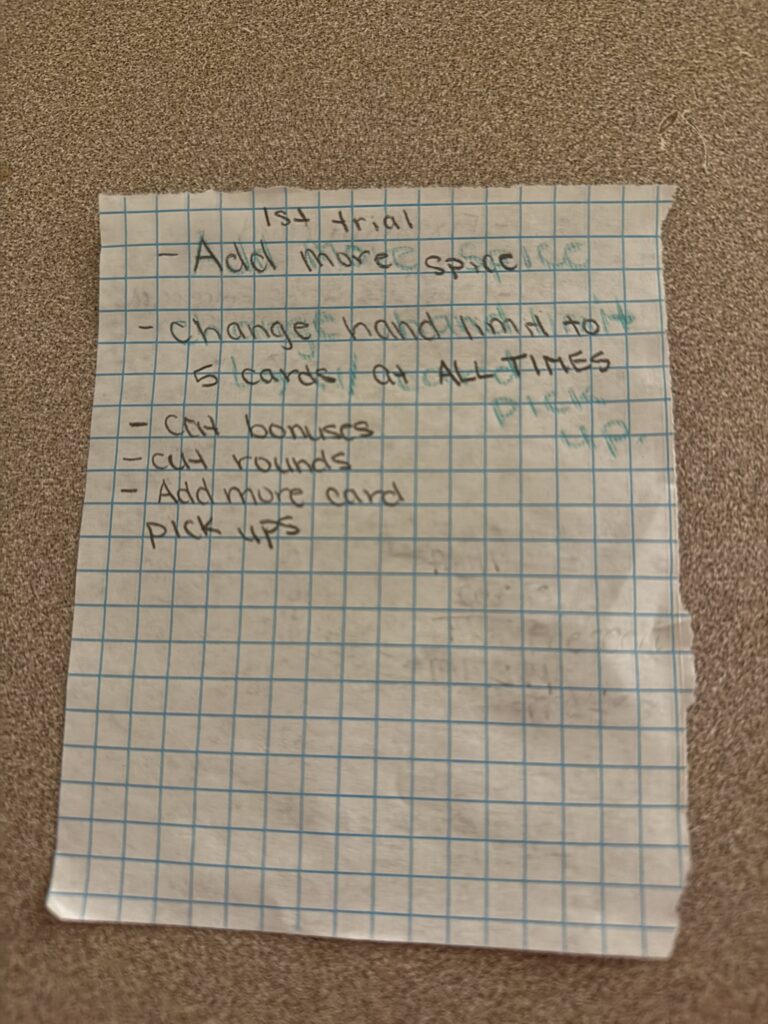 1st trial
- Add more spice
- change hand limit to
5 cards at ALL TIMES
- cut bonuses
- cut rounds
- Add more card
pick ups
pick
up.